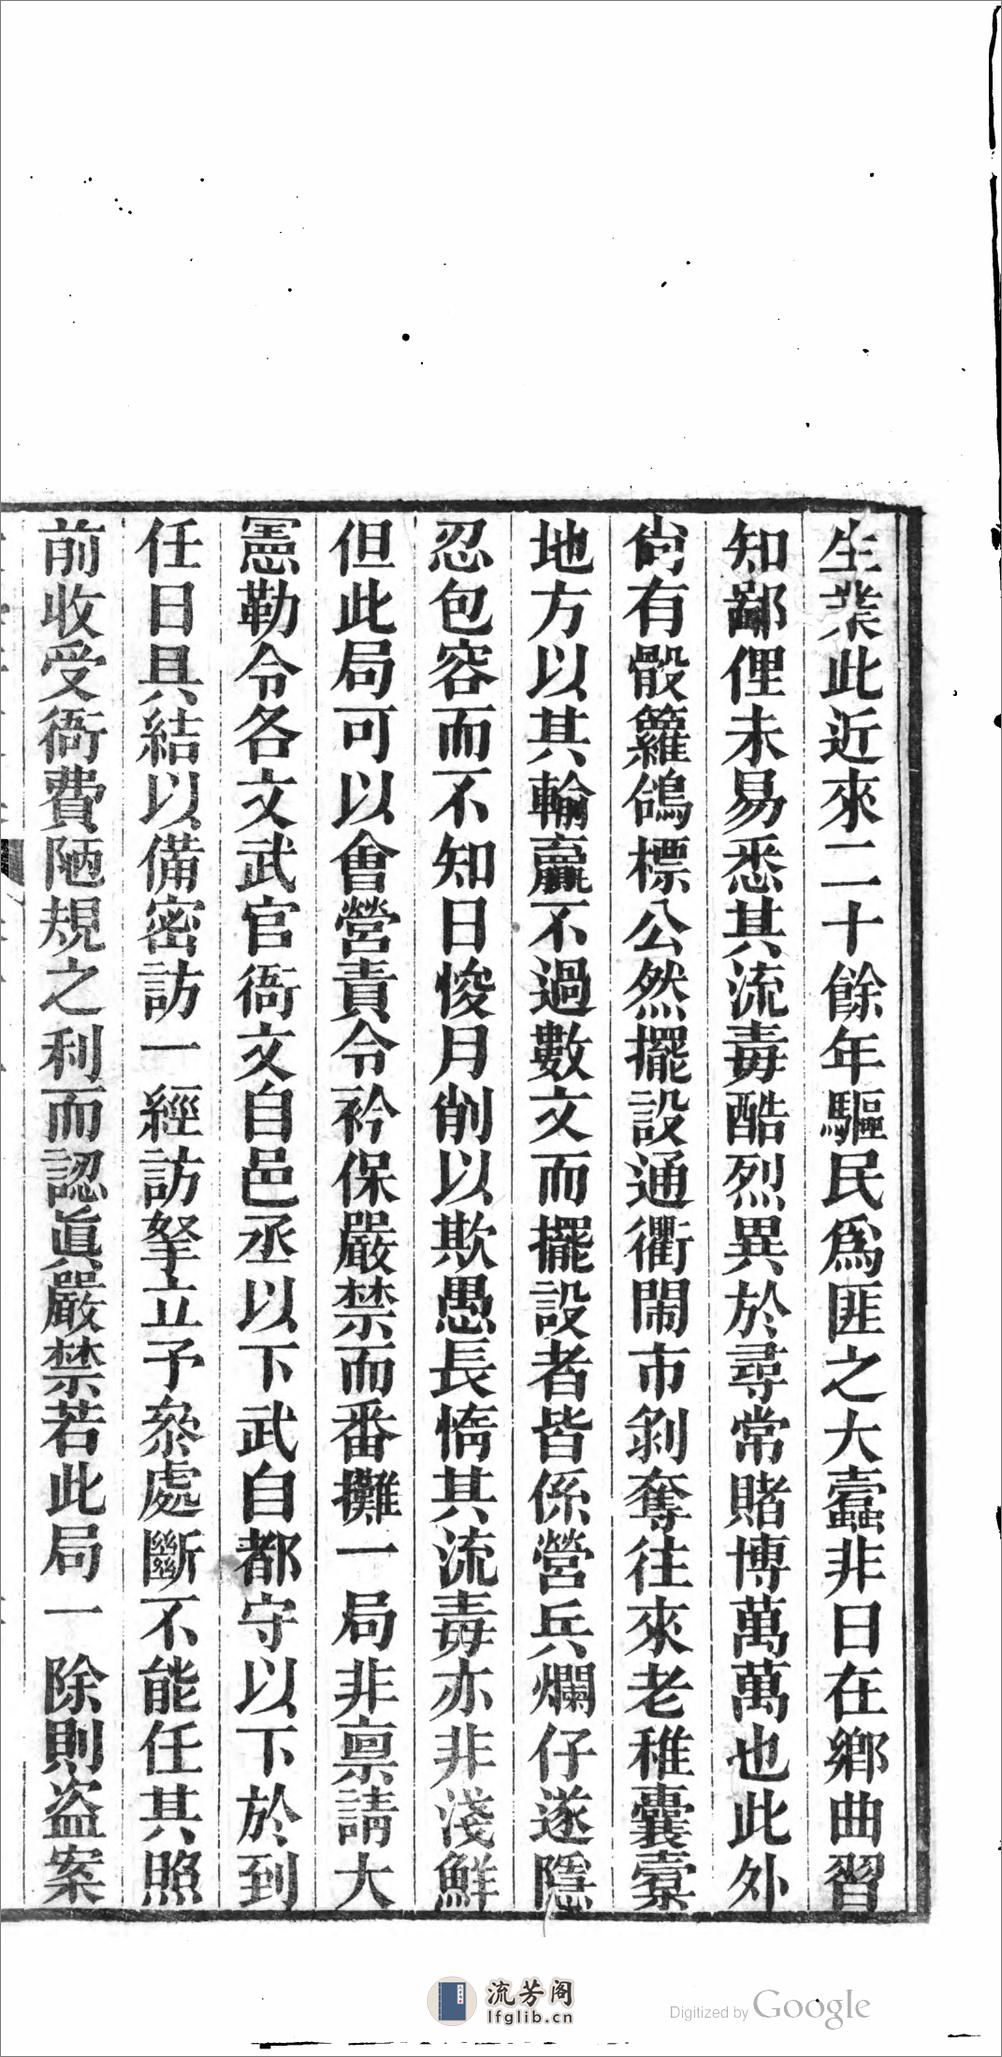 生業此近來二十餘年驅民爲匪之大蠹非日在鄉曲習
知鄙俚未易悉其流毒酷烈異於尋常賭博萬萬也此外
尙有骰籮鴿標公然擺設通衢閙市剝奪往來老稚囊橐
地方以其輸贏不過數文而擺設者皆係營兵爛仔遂隱
忍包容而不知日悛月削以欺愚長惰其流毒亦非淺鮮
但此局可以會營責令衿保嚴禁而番攤一局非禀請大
憲勒令各文武官衙文自邑丞以下武自都守以下於到
任日具結以備密訪一經訪拏立予叅處斷不能任其照
前收受衙費陋規之利而認眞嚴禁若此局一除則盜案
流芳阁
lfglib.cn
Digitized by Google